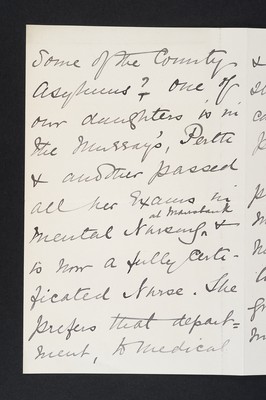 Some of the County
Asylums? One of
our daughters is in
the Murray's, Perth
& another passed
all her Exams in
at Mavisbank
Mental Nursing, &
is now a fully Certi-
ficated Nurse. She
prefers that depart=
ment, to medical
&